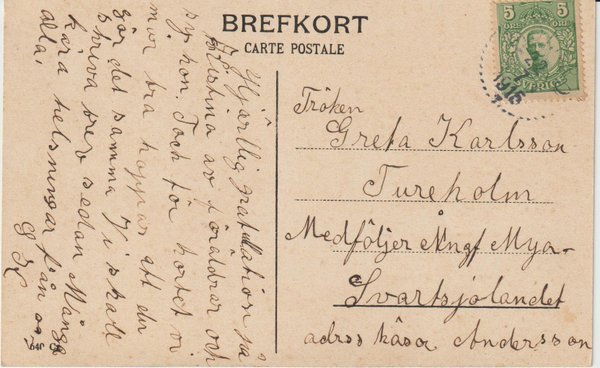 BREFKORT
CARTE POSTALE
5 5
SVERIGE
1916
Hjärtlig gratulation på
Kristina av föräldrar och
syskon. Tack för kortet vi
mår bra hoppas att du
gör det samma Vi skall
skriva brev sedan Många
kära helsningar från oss
alla.
G K
Fröken
Greta Karlsson
Tureholm
Medföljer Ångf Mya-
Svartsjölandet
adrss Andersson